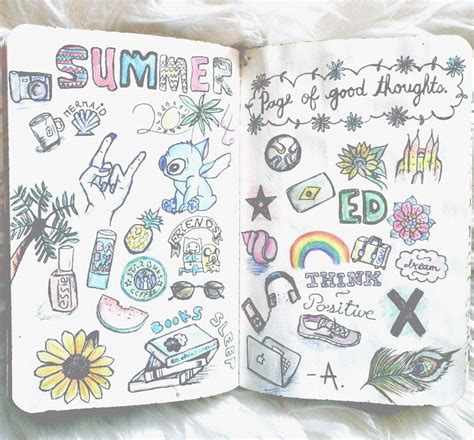 SUMMER
MERMAID
2014
FRIENDS
COFFEE
BOOKS
SLEEP
Page of good thoughts.
ED
dream
THINK
Positive
X
-A.